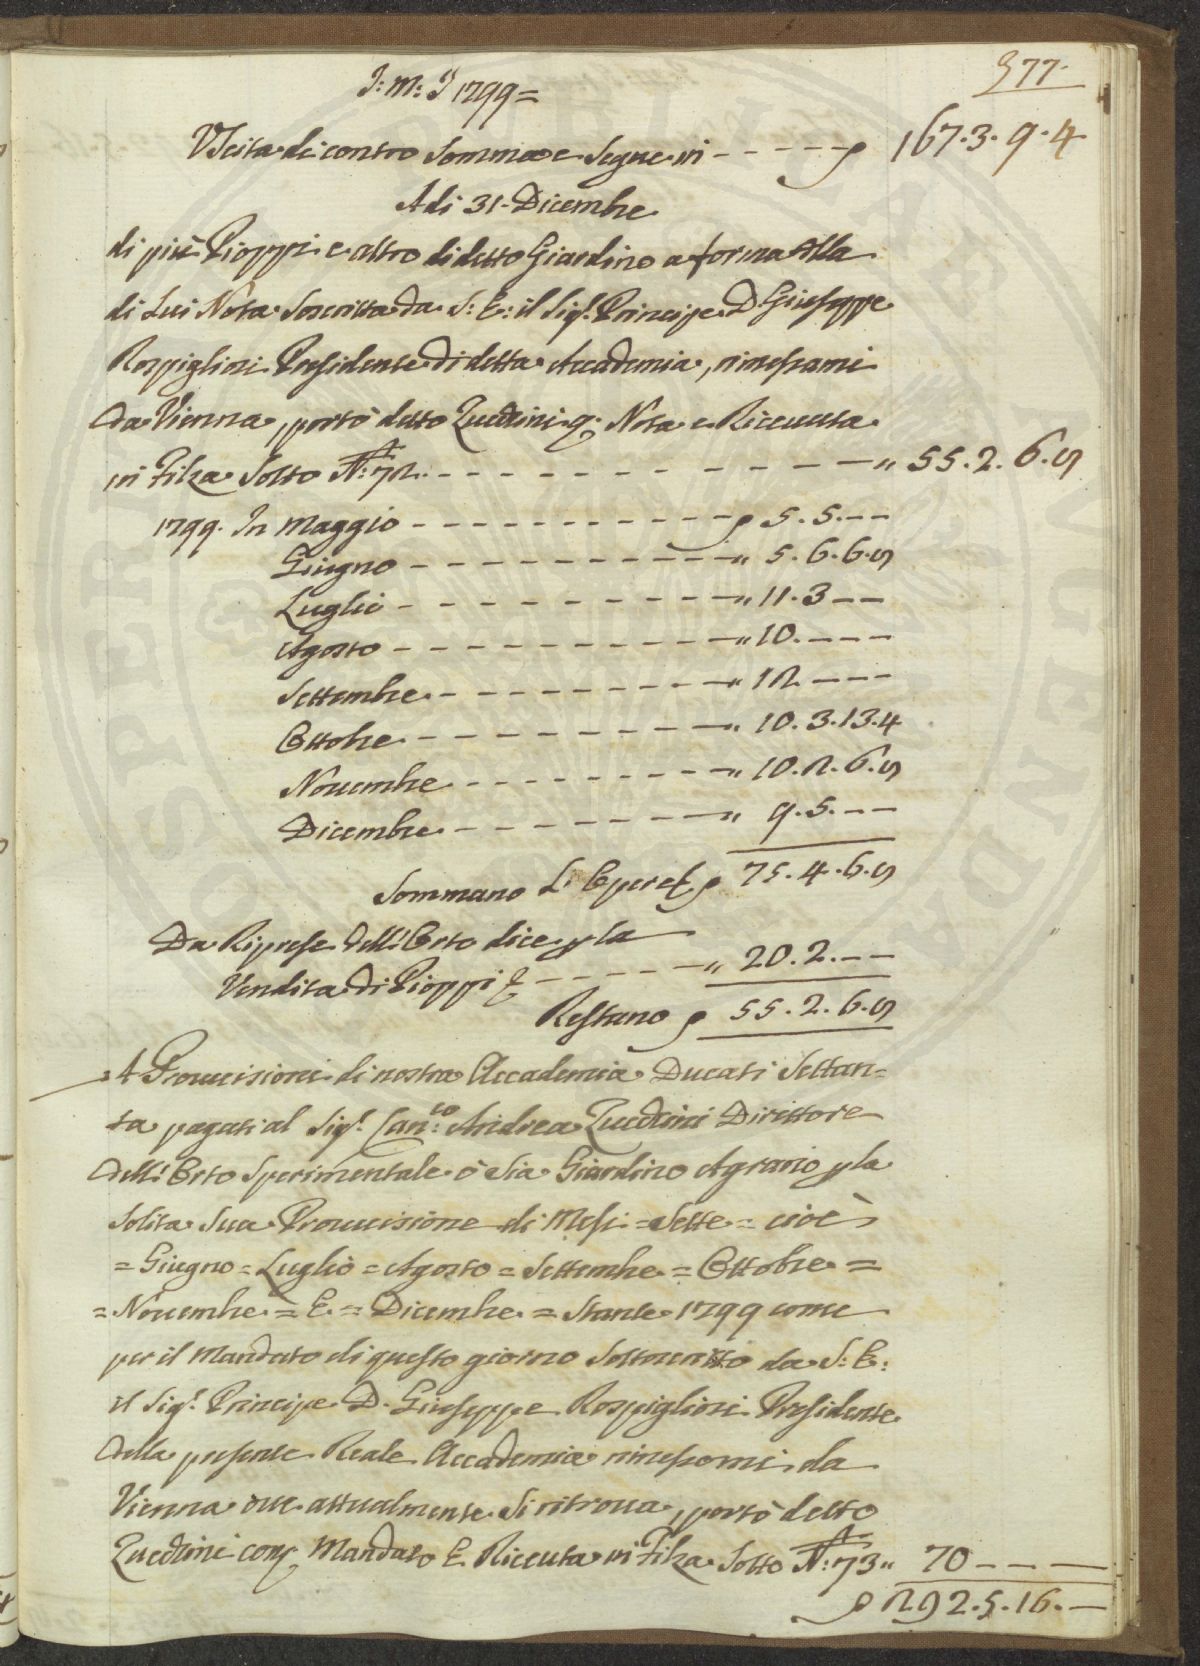 377.
J: M: J 1799 =
Uscita di contro Somma e Segue in - - - - - 167.3.9.4
A di 31. Dicembre
di più Pioppi e altro di detto Giardino a forma Alla
di Lui Nota Soscritta da S: E: il Sig.r Principe D. Giuseppe
Rospigliosi Presidente Di detta Accademia, rimessami
Da Vienna, portò detto Zucchini q: Nota e Riceuuta
in Filza Sotto N: 72. - - - - - - - - - - " 55.2.6.8
1799. In Maggio - - - - - - - - - - 5.5.--
Giugno - - - - - - - - - - " 5.6.6.8
Luglio - - - - - - - - - - " 11.3--
Agosto - - - - - - - - - - " 10.---
Settembre - - - - - - - - - " 12.---
Ottobre - - - - - - - - - - " 10.3.13.4
Nouembre - - - - - - - - - " 10.2.6.8
Dicembre - - - - - - - - - " 9.5.--
Sommano L' Opere 75.4.6.8
Da Riprese dell' Orto dice p la
Vendita Di Pioppi - - - - - - " 20.2.--
Restano 55.2.6.8
A Prouuisioni di nostra Accademia Ducati Settan=
ta pagati al Sig.r Can:co Andrea Zucchini Direttore
dell' Orto Sperimentale ò Sia Giardino Agrario p la
Solita Sua Prouuisione di Mesi = Sette = cioè
= Giugno = Luglio = Agosto = Settembre = Ottobre =
= Nouembre = E = Dicembre = Stante 1799 come
per il Mandato di questo giorno Sottoscritto da S: E:
il Sig.r Principe D. Giuseppe Rospigliosi Presidente
della presente Reale Accademia rimessomi da
Vienna oue attualmente Si ritroua, portò detto
Zucchini con Mandato E Riceuta in Filza Sotto N: 73 " 70 - - -
292.5.16.-